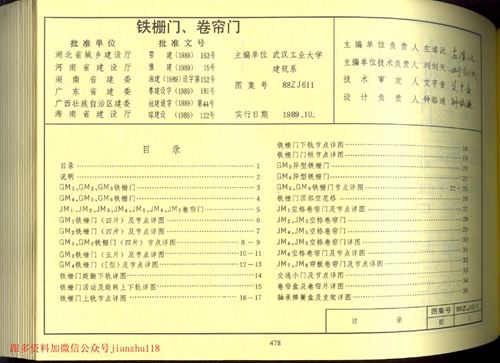 铁栅门、卷帘门
批准单位 批准文号
湖北省城乡建设厅 鄂建(1989) 163号
河南省建设厅 豫建(1989) 15号
湖南省建委 湘建(1989)设字第152号
广东省建委 粤建(1989) 181号
广西壮族自治区建委 桂建设字(1989)第44号
海南省建设厅 琼建设(1989) 122号
主编单位 武汉工业大学
建筑系
图集号 88ZJ611
实行日期 1989.10.
主编单位负责人
主编单位技术负责人 刘剑天
技术审定人
设计负责人
目录
目录 1
说明 2
GM₁、GM₂、GM₃铁栅门 3
GM₄、GM₅、GM₆铁栅门 4
JM₁、JM₂、JM₃、JM₄、JM₅、JM₆、JM₇卷帘门 5
GM₁铁栅门(四片)及节点详图 6
GM₂铁栅门(四片)及节点详图 7
GM₁、GM₂铁栅门(四片)节点详图 8-9
GM₃铁栅门(五片)及节点详图 10-11
GM₄铁栅门(型)及节点详图 12-13
铁栅门旋翻下轨详图 14
铁栅门活动及旋转上下轨详图 15
铁栅门上轨节点详图 16-17
铁栅门下轨节点详图 18
铁栅门门框节点详图 19
GM₅异型铁栅门 20
GM₆异型铁栅门 21
GM₅、GM₆铁栅门节点详图 22-25
铁栅门顶部空花格 26
JM₁空格卷帘门及节点详图 27
JM₂、JM₃空格卷帘门 28
JM₂、JM₃空格卷帘门详图 29
JM₄、JM₅空格卷帘门 30
JM₄、JM₅空格卷帘门详图 31
JM₆空格卷帘门及节点详图 32
JM₇、JM₈帘板卷帘门及节点详图 33
交通小门及节点详图 34
卷帘盒及卷帘片详图 35
轴承弹簧盒及支架详图 36
目录 图集号 88ZJ611
页 1
478
跟多资料加微信公众号jianzhu118